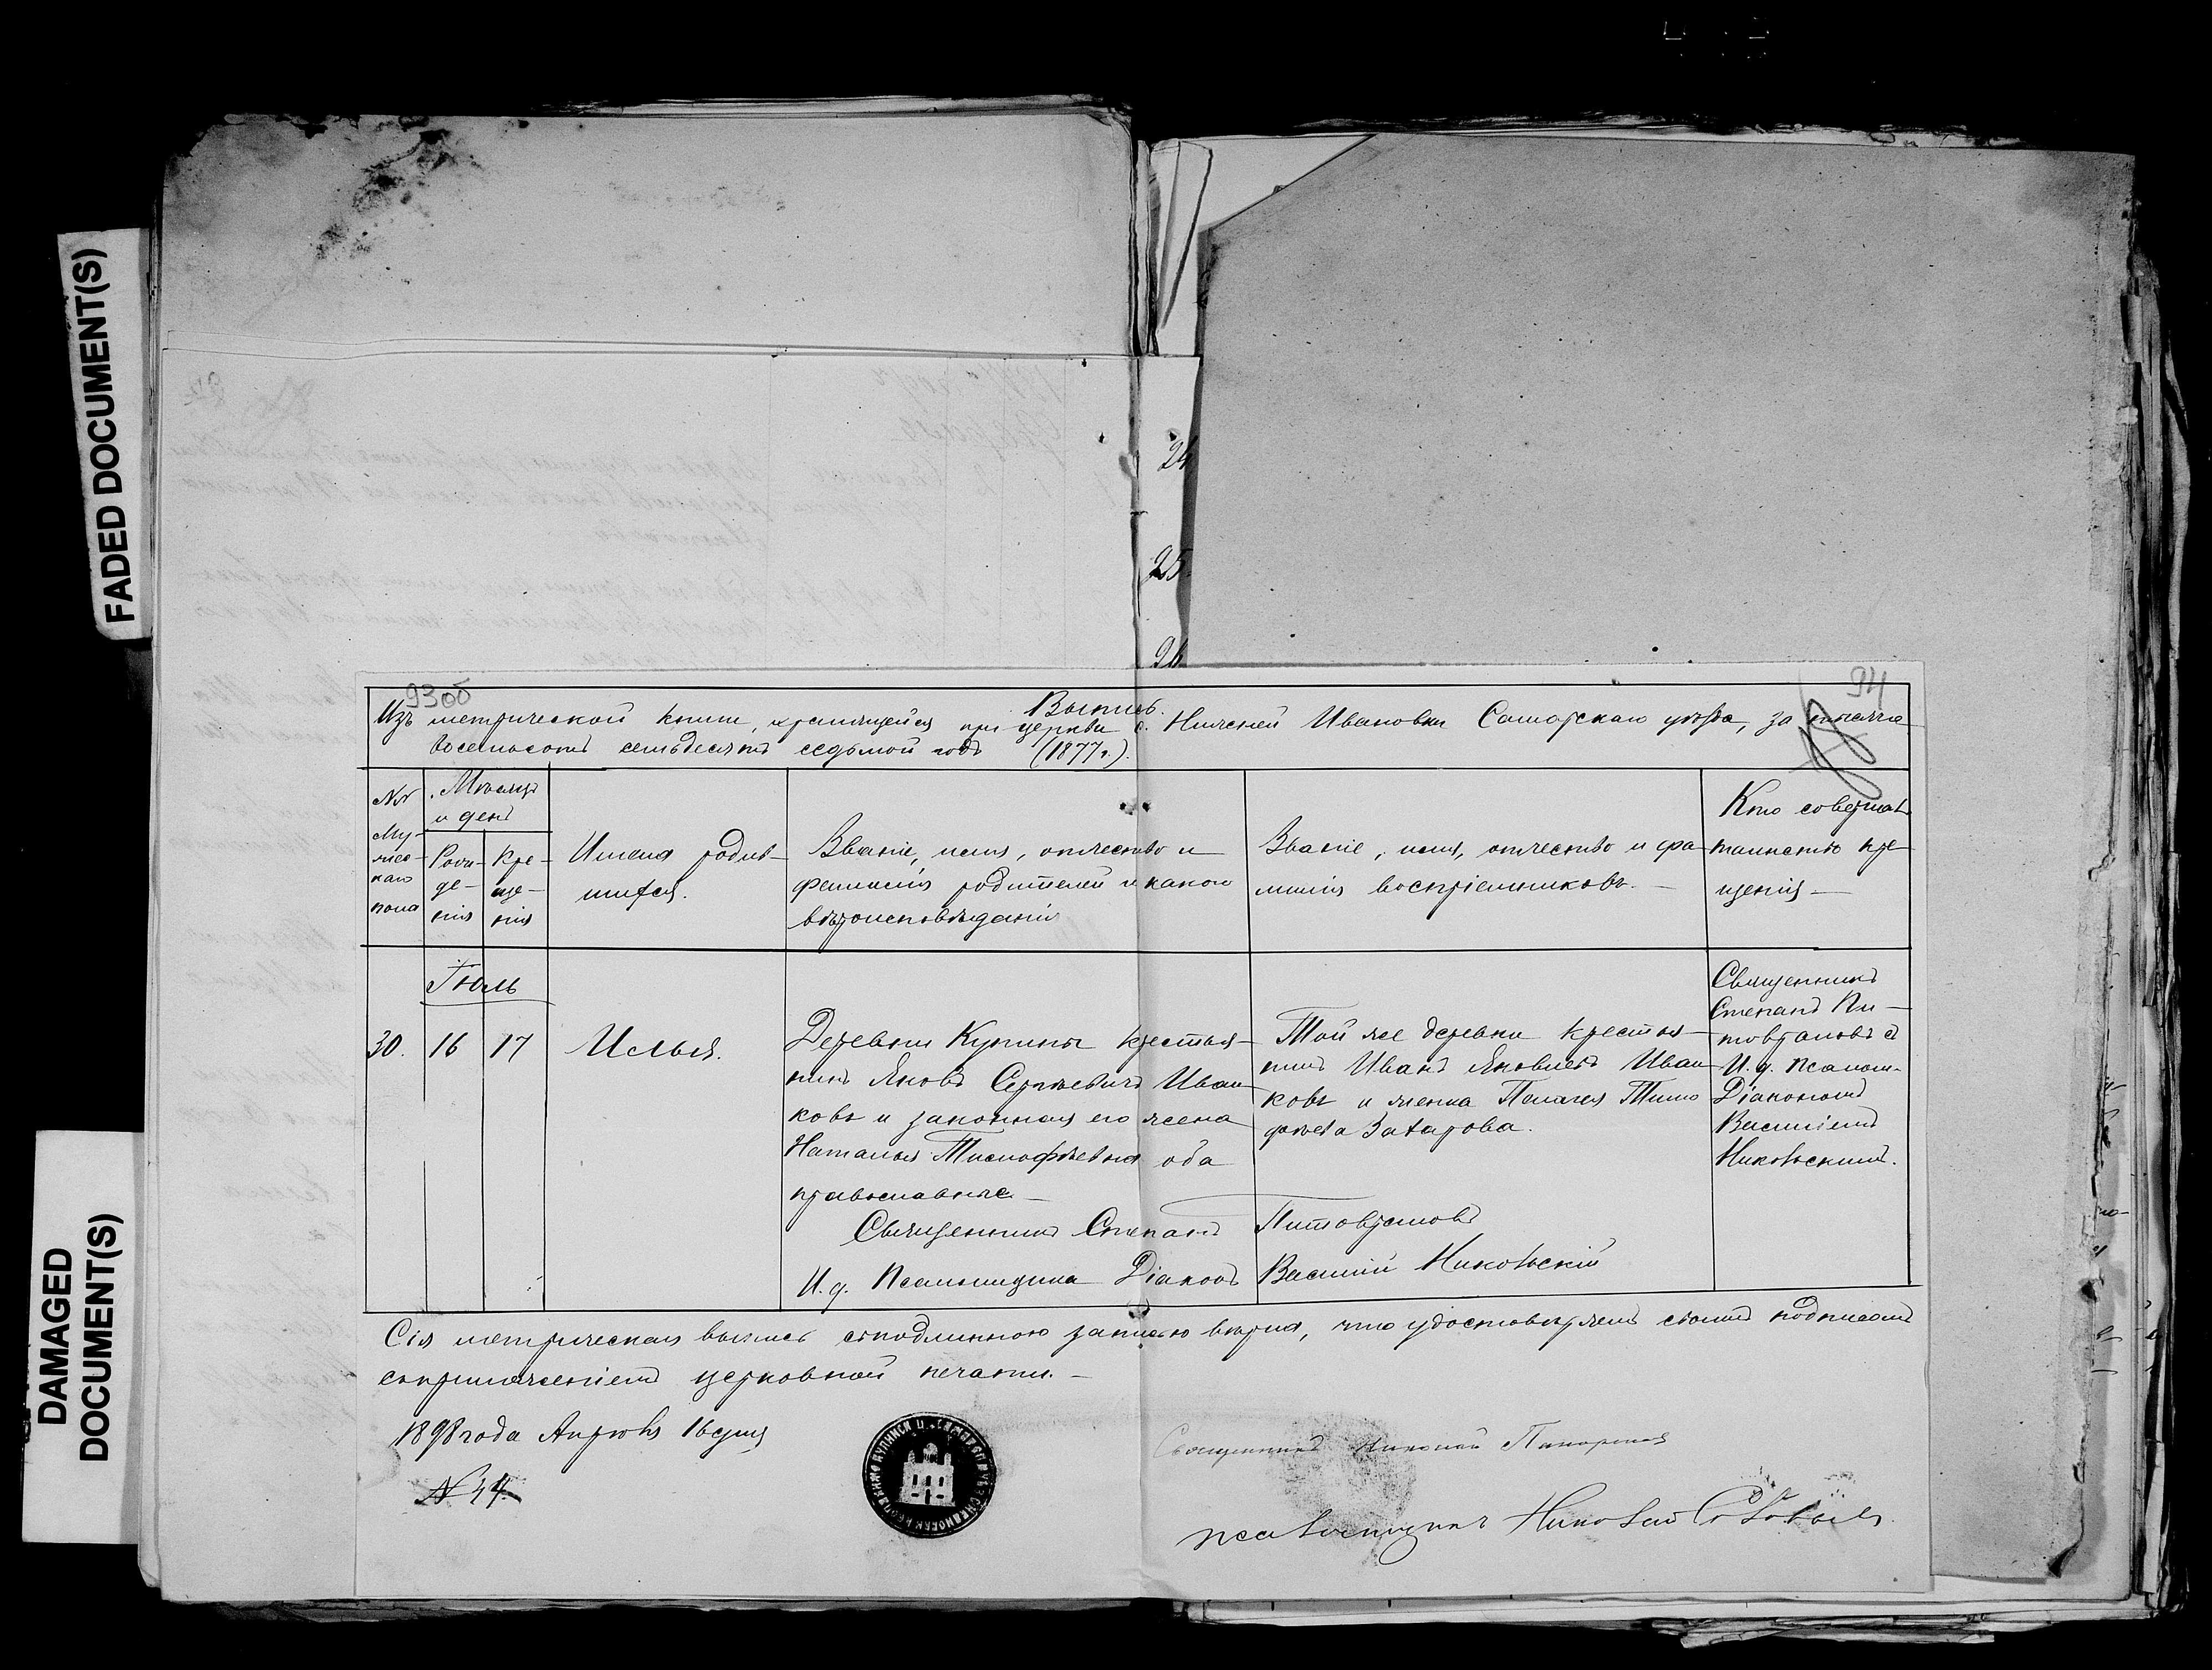 FADED DOCUMENT(S)
DAMAGED
DOCUMENT(S)
24
25.
26
93об
94
Выпись.
Изъ метрической книги, хранящейся при церкви с. Нижней Ивановки Самарскаго уѣзда, за тысяча
восемьсотъ семьдесятъ седьмой годъ (1877 г.).
№№
Му-
жес-
каго
пола
Мѣсяцъ
и день
Рож-
де-
нія
Кре-
ще-
нія
Имена родив-
шихся.
Званіе, имя, отчество и
фамилія родителей и какого
вѣроисповѣданія
Званіе, имя, отчество и фа-
милія воспріемниковъ. —
Кто совершалъ
таинство кре-
щенія —
Іюль
30. 16 17 Илья.
Деревни Купины крестья-
нинъ Яковъ Сергѣевичъ Иван-
ковъ и законная его жена
Наталья Тимофѣевна оба
православные —
Той же деревни крестья-
нинъ Иванъ Яковлевъ Иван-
ковъ и женка Пелагея Тимо
фѣева Захарова.
Священникъ
Степанъ Пи-
товрановъ съ
И. д. псалом.
Діакономъ
Василіемъ
Никольскимъ.
Священникъ Степанъ Питоврановъ
И. д. Псаломщика Діаконъ Василій Никольскій
Сія метрическая выпись съ подлинною записью вѣрна, что удостовѣряемъ своимъ подписомъ
съ приложеніемъ церковной печати. —
1898 года Апрѣля 16 дня
№ 34.
Священникъ Николай
псаломщикъ Николай Соловьевъ